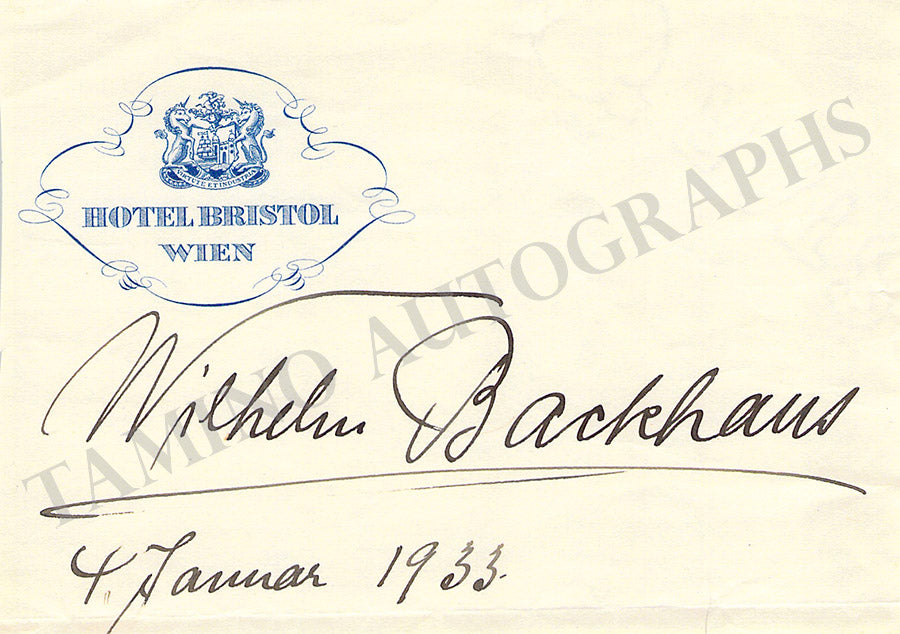 VIRTUTE ET INDUSTRIA
HOTEL BRISTOL
WIEN
TAMINO AUTOGRAPHS
Wilhelm Backhaus
4 Januar 1933.